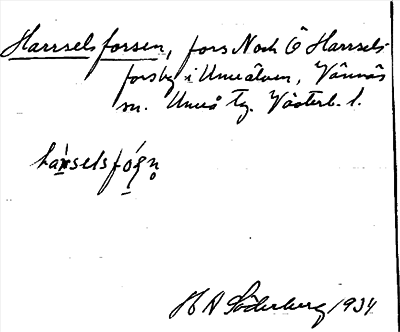 Harrselsforsen, fors N och Ö Harrsels-
forsby i Umeälven, Vännäs
sn. Umeå tg. Västerb. l.
H A Söderberg 1934